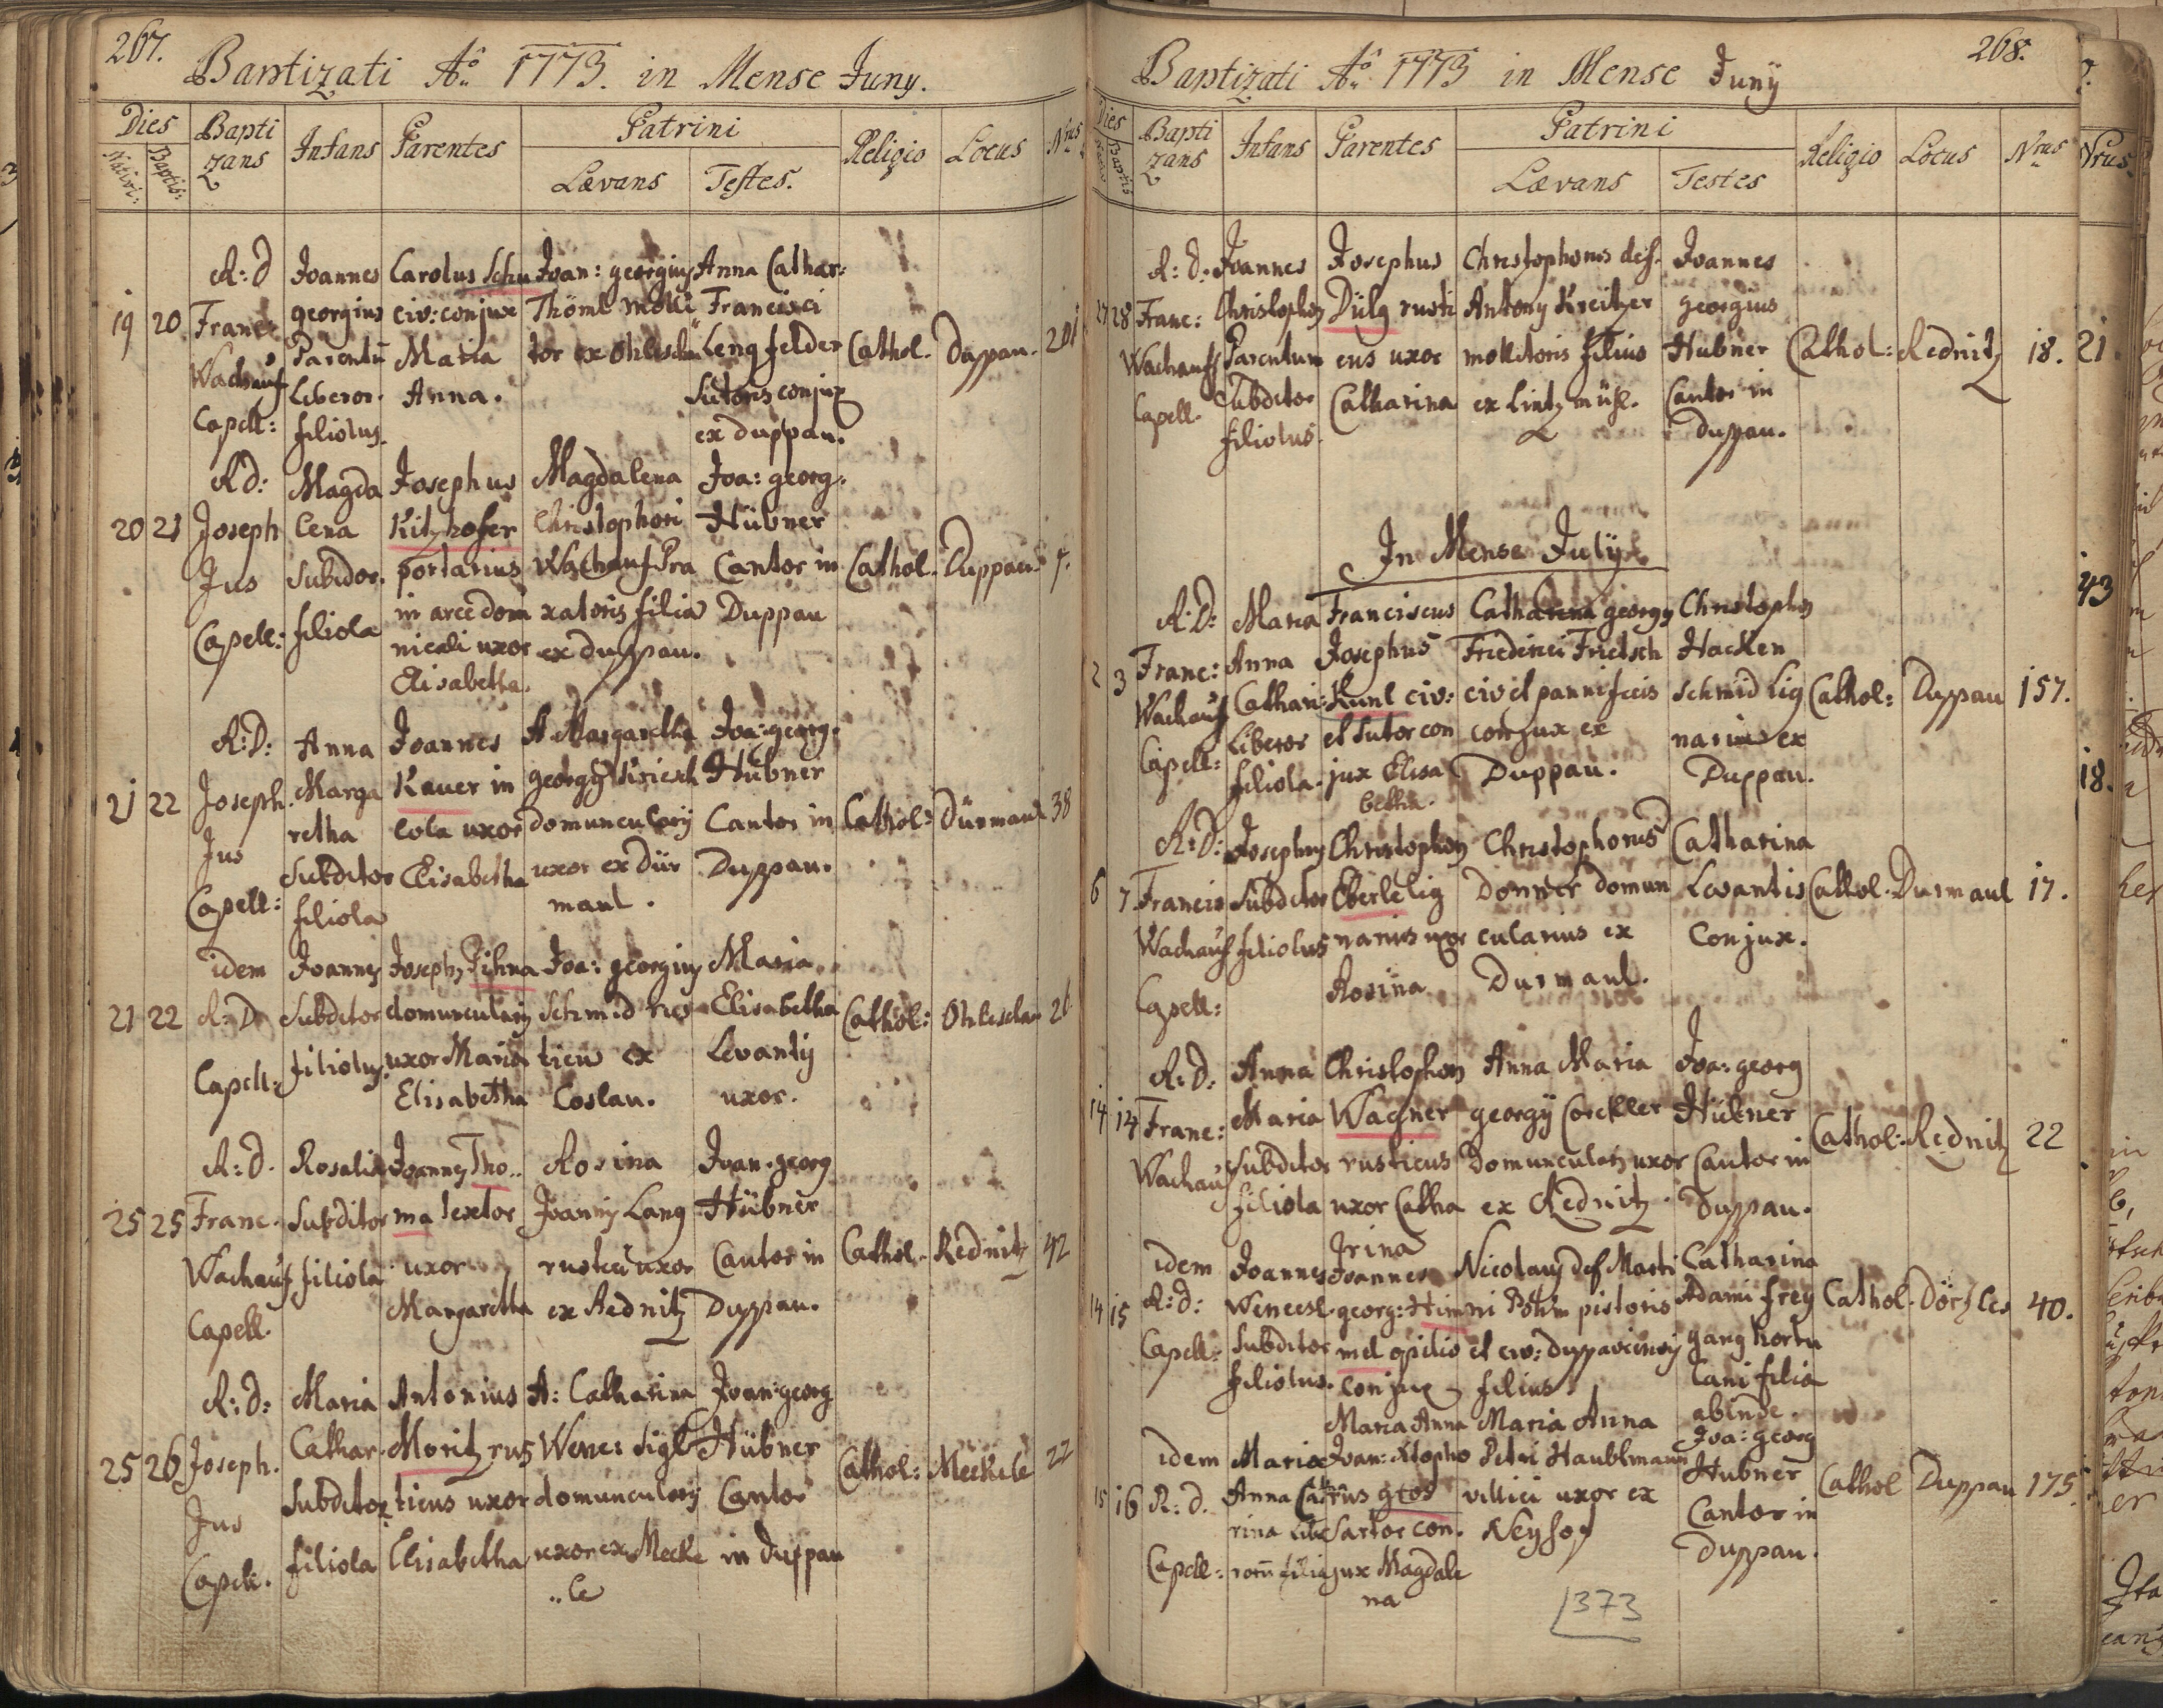 267.
Baptizati Aõ 1773. in Mense Juny.
Dies
Nativi:
Baptis:
Bapti
zans
Infans
Parentes
Patrini
Lævans
Testes.
Religio
Locus
Nrus
19
20
R: d
Franc:
Wachauf
Capell:
Joannes
georgius
Parentũ
Liberor.
filiolus.
Carolus Schu
civ: conjux
Maria
Anna.
Joan: georgius
Thöml moli
tor ex
Anna Cathar:
Francisci
Lengfelder
Sutoris conjux
ex duppau.
Cathol.
Duppau.
201
20
21
R d:
Joseph
Jus
Capell:
Magda
lena
Subdor.
filiola
Josephus
Kitzhofer
portarius
in arce dom
nicali uxor
Elisabetha.
Magdalena
Christophori
Wachauf Pra
xatoris filia
ex duppau.
Joa: georg:
Hübner
Cantor in
Duppau
Cathol.
Duppau.
7.
21
22
R: D:
Joseph.
Jus
Capell:
Anna
Marga
retha
Subditor
filiola
Joannes
Kauer in
cola uxor
Elisabetha
A Margaretha
georgÿ
domuncularÿ
uxor ex Dür
maul.
Joa: georg.
Hübner
Cantor in
Duppau.
Cathol:
Dürmaul
38
21
22
idem
R: D
Capell:
Joannes
Subditor
filiolus.
Josephus Pihna
domuncularÿ
uxor Maria
Elisabetha
Joa: georgius
Schmid rus
ticus ex
Coslau.
Maria
Elisabetha
Levantis
uxor.
Cathol:
26
25
25
R: d.
Franc.
Wachauf
Capell.
Rosalia
Subditor
filiola
Joannes Tho..
ma textor
uxor
Margaretha
Rosina
Joannis Lang
rustici uxor
ex Rednitz
Joan. georg
Hübner
Cantor in
Duppau.
Cathol.
Rednitz
42
25
26
R: d:
Joseph.
Jus
Capell.
Maria
Cathar.
Subditor
filiola
Antonius
Moritz rus
ticus uxor
Elisabetha
A: Catharina
Wenc: Sigl
domuncularÿ
uxor ex Mecke
..le
Joan: georg
Hübner
Cantor
in duppau
Cathol:
Meckele
22
268.
Baptizati Aõ 1773 in Mense Junÿ
Dies
Baptis
Bapti
zans
Infans
Parentes
Patrini
Lævans
Testes
Religio
Locus
Nrus
27
28
R: d.
Franc:
Wachauf
Capell.
Joannes
Christophus
Parentum
Subditor
filiolus.
Josephus
Dülg rusti
cus uxor
Catharina
Christophorus def.
Antony Kreitzer
molitoris filius
ex Lintzmühl.
Joannes
georgius
Hubner
Cantor in
duppau.
Cathol:
Rednitz
18.
In Mense Julÿ
2
3
R: D:
Franc:
Wachauf
Capell:
Maria
Anna
Cathari:
Liberor
filiola.
Franciscus
Josephus
Kunl civ:
et sutor con
jux Elisa
betha.
Catharina georgy
Friderici Frietsch
civ et pannificis
conjux ex
Duppau.
Christophus
Hacken
schmid lig
narius ex
Duppau.
Cathol:
Duppau
157.
6
7
R: D:
Francis
Wachauf
Capell:
Josephus
Subditor
filiolus
Christophus
Eberle lig
narius uxor
Rosina
Christophorus
Donner domun
cularius ex
Durmaul.
Catharina
Levantis
Conjux.
Cathol.
Durmaul
17.
14
14
R: d:
Franc:
Wachau
Anna
Maria
Subditor
filiola
Christophus
Wagner
rusticus
uxor Catha
rina
Anna Maria
georgÿ
Domuncularÿ uxor
ex Rednitz.
Joa: georg
Hübner
Cantor in
Duppau.
Cathol:
Rednitz
22
14
15
idem
R: d:
Capell:
Joannes
Wencesl.
Subditor
filiolus.
Joannes
georg: Him
mel opilio
conjux
Maria Anna
Nicolaus def Marti
ni Pöhm pistoris
et civ: duppaviensis
filius.
Catharina
Adami Frey
gang hortu
lani filia
abinde.
Cathol.
Dörfles
40.
15
16
idem
R: d.
Capell:
Maria
Anna Catha
rina Libe
rorũ filia
Joan: Xtopho
rus gros
Sartor con
jux Magdale
na
Maria Anna
Petri Haublman
villici uxor ex
Neyhof
Joa: georg
Hubner
Cantor in
Duppau.
Cathol
Duppau
175.
373
Nrus
21.
43
18.